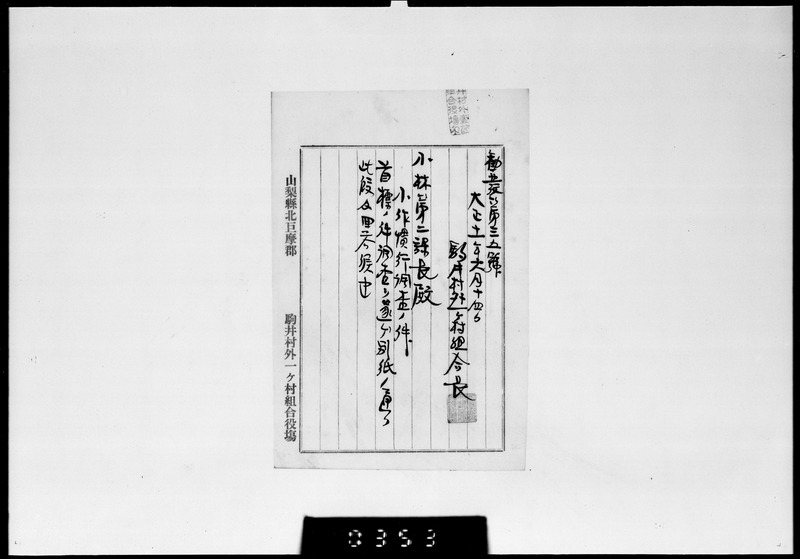 勧発第三五號
大正十一年六月十四日
駒井村外一ヶ村組合長
小林第二課長殿
小作慣行調査ノ件
首標ノ件調査ヲ遂ケ別紙ノ通リ
此段及回答候也
山梨縣北巨摩郡 駒井村外一ヶ村組合役場
0353